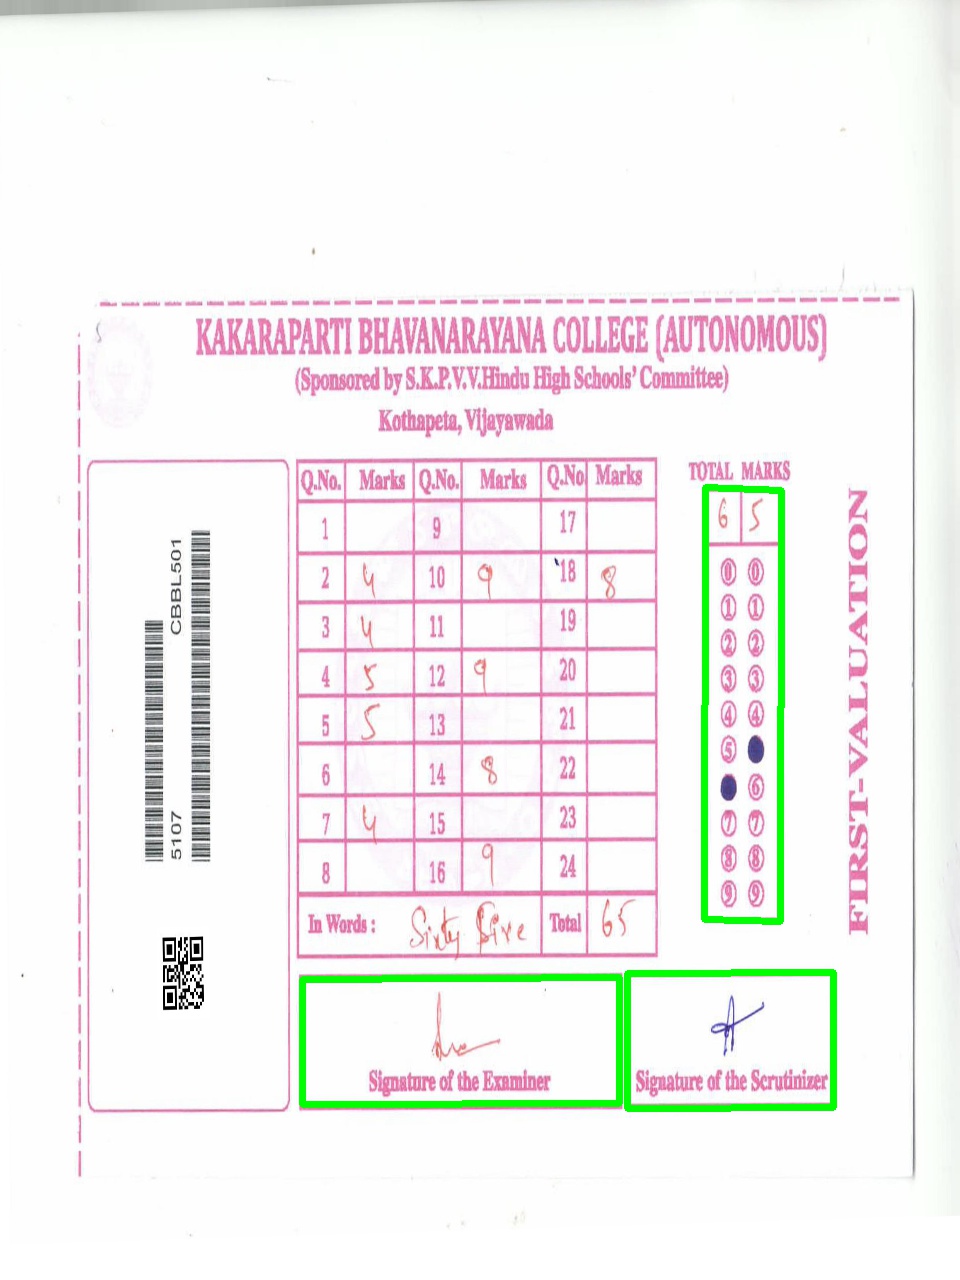 KAKARAPARTI BHAVANARAYANA COLLEGE (AUTONOMOUS)
(Sponsored by S.K.P.V.V.Hindu High Schools' Committee)
Kothapeta, Vijayawada
CBBL501
5107
Q.No. Marks Q.No. Marks Q.No Marks
1 9 17
2 4 10 9 18 8
3 4 11 19
4 5 12 9 20
5 5 13 21
6 14 8 22
7 4 15 23
8 16 9 24
In Words : Sixty Five Total 65
TOTAL MARKS
6 5
0 0
1 1
2 2
3 3
4 4
5
6
7 7
8 8
9 9
FIRST-VALUATION
Signature of the Examiner
Signature of the Scrutinizer